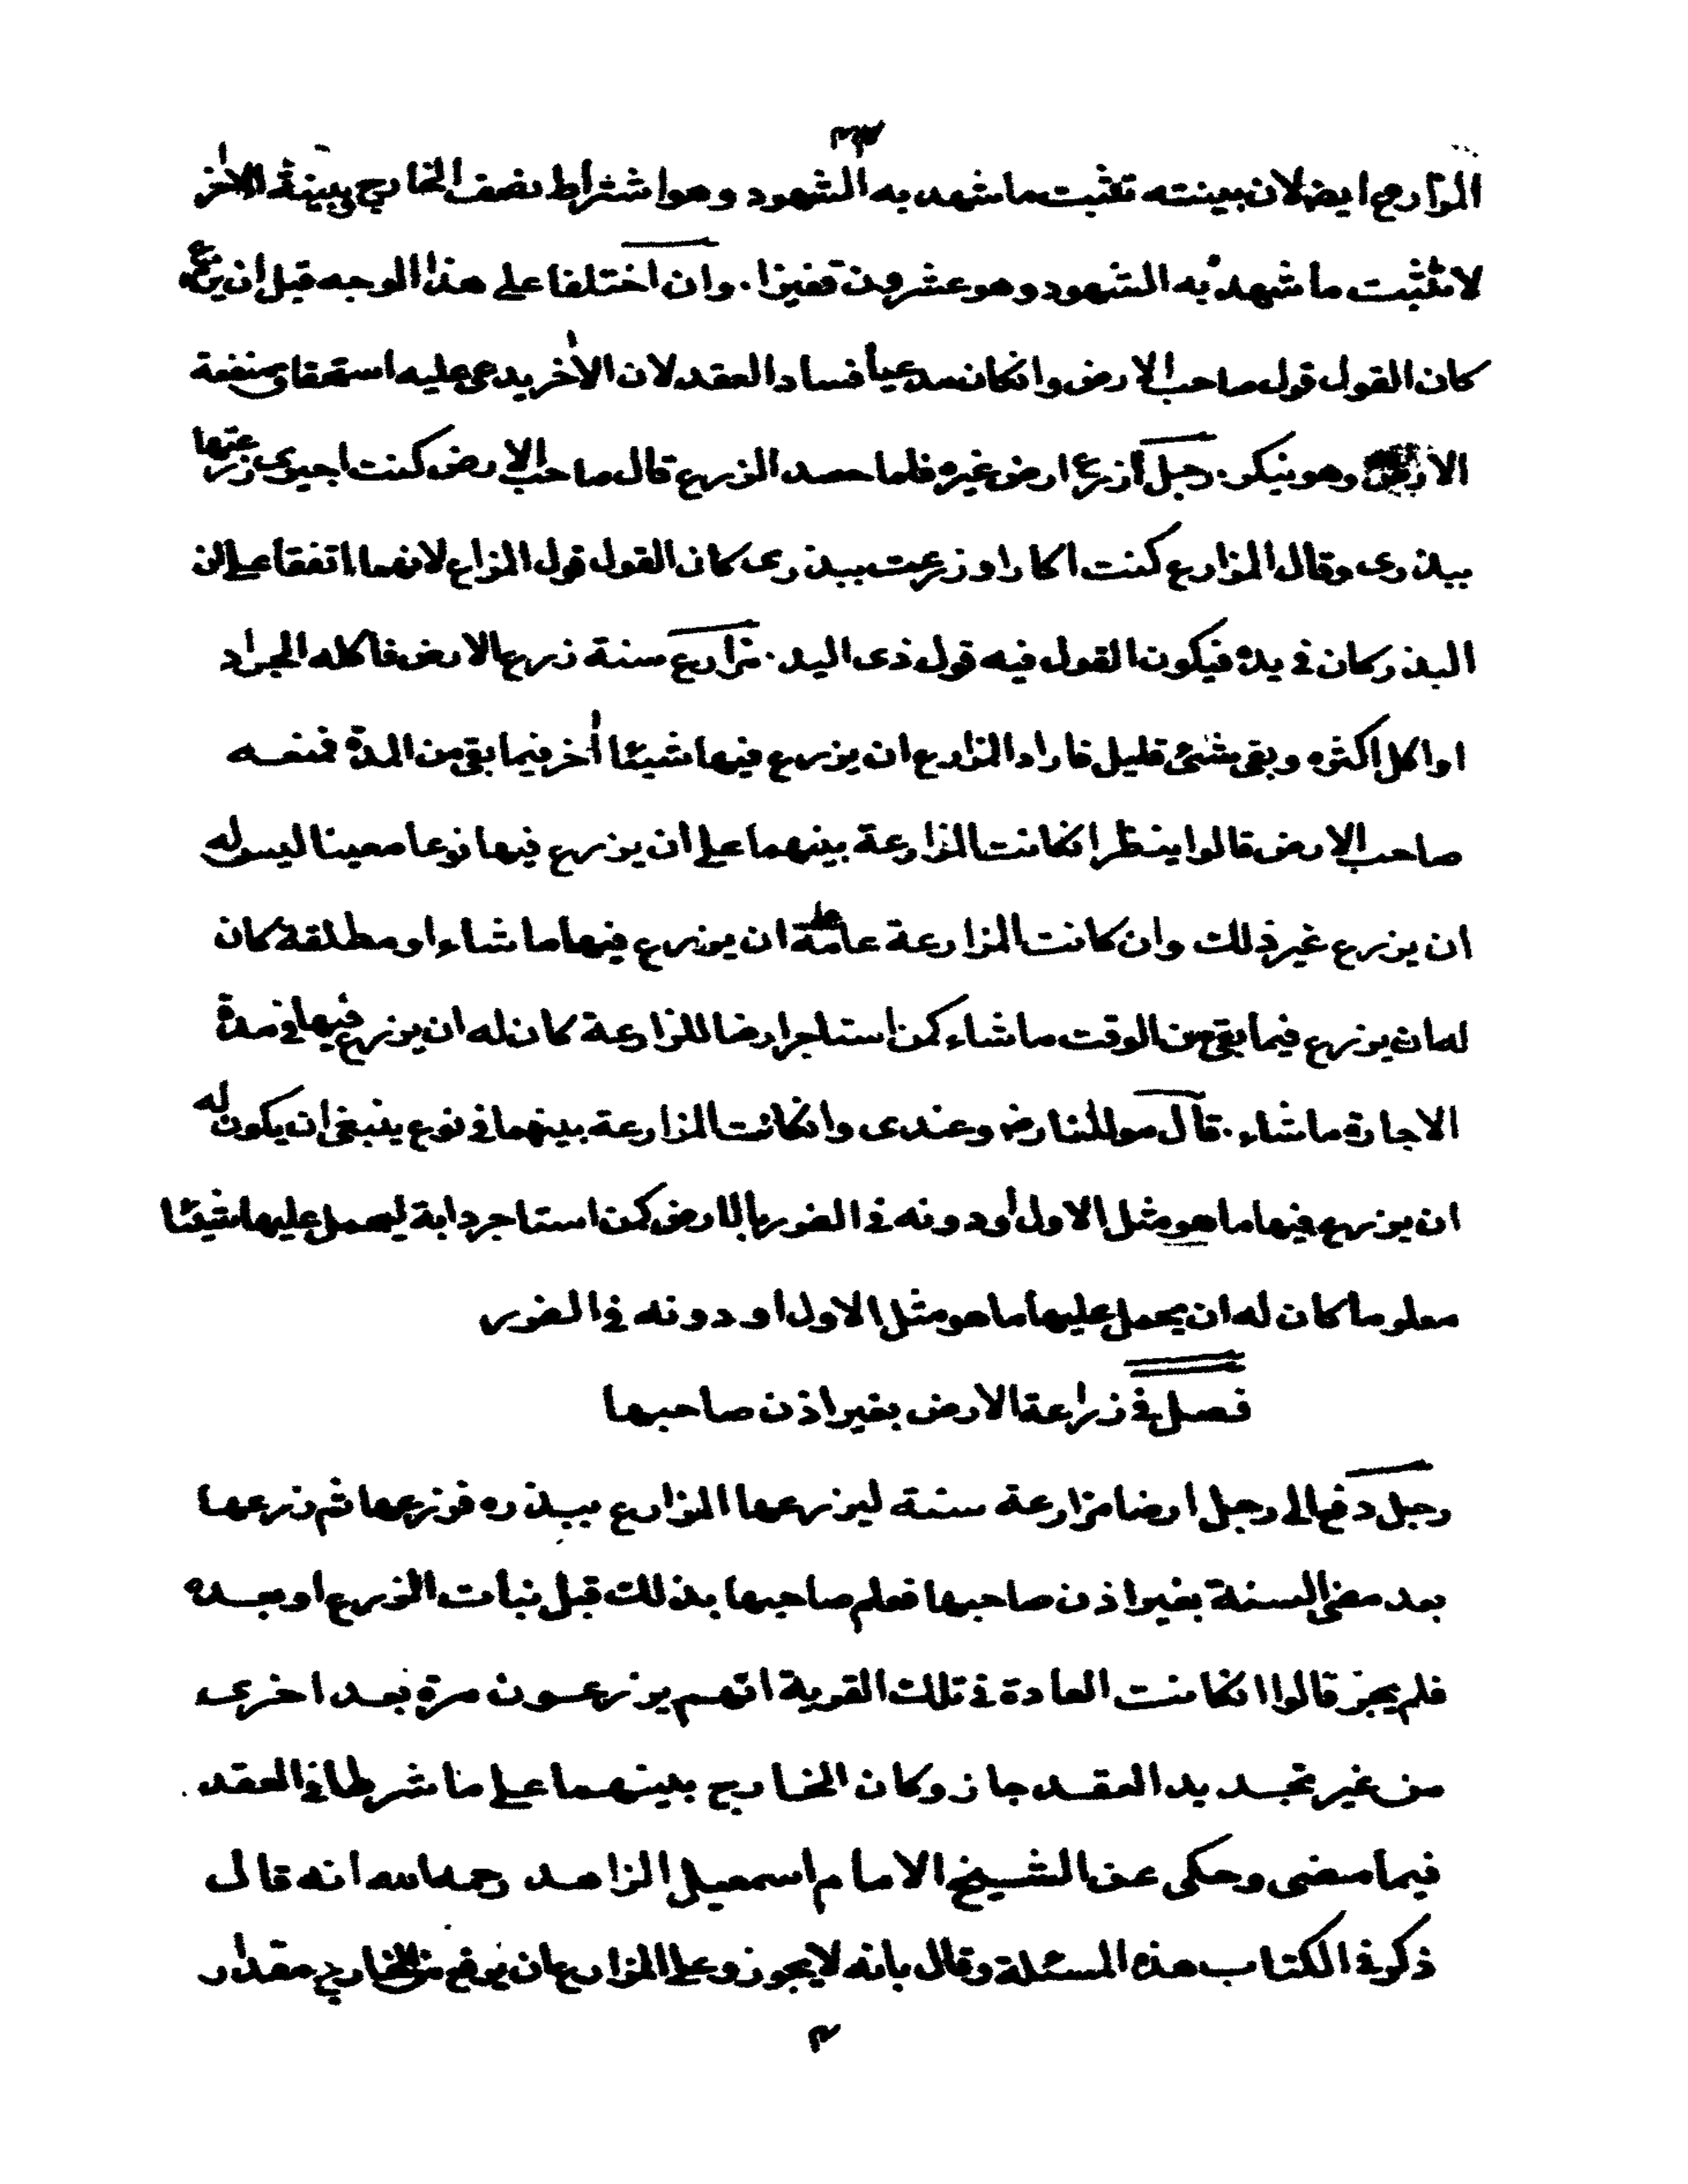 المزارع ايضا لان بينته تثبت ما شهد به الشهود وهو اشتراط نصف الخارج وبينة الآخر
لا تثبت ما شهد به الشهود وهو عشرون قفيزا . وان اختلفا على هذا الوجه قبل ان يزرع
كان القول قول صاحب الارض وانكان مدعيا فساد العقد لان الآخر يدعى عليه استحقاق منفعة
الارض وهو ينكر . رجل زرع ارض غيره فلما حصد الزرع قال صاحب الارض كنت اجيرى زرعتها
ببذرى وقال المزارع كنت اكارا وزرعت ببذرى كان القول قول المزارع لانهما اتفقا على ان
البذر كان فى يده فيكون القول فيه قول ذى اليد . مزارع سنة زرع الارض فاكله الجراد
او اكل اكثره وبقى شئ قليل فاراد المزارع ان يزرع فيها شيئا آخر فيما بقى من المدة فمنعه
صاحب الارض قالوا ينظر انكانت المزارعة بينهما على ان يزرع فيها نوعا معينا ليس له
ان يزرع غير ذلك وان كانت المزارعة عامة على ان يزرع فيها ما شاء او مطلقة كان
له ان يزرع فيما بقى من الوقت ما شاء كمن استاجر ارضا للزارعة كان له ان يزرع فيها فى مدة
الاجارة ما شاء . قال مولانا رض وعندى وانكانت المزارعة بينهما فى نوع ينبغى ان يكون له
ان يزرع فيها ما هو مثل الاول او دونه فى الضرر بالارض كمن استاجر دابة ليحمل عليها شيئا
معلوما كان له ان يحمل عليها ما هو مثل الاول او دونه فى الضرر
فصل فى زراعة الارض بغير اذن صاحبها
رجل دفع الى رجل ارضا مزارعة سنة ليزرعها المزارع ببذره فزرعها ثم زرعها
بعد مضى السنة بغير اذن صاحبها فعلم صاحبها بذلك قبل نبات الزرع او بعده
فلم يجز قالوا انكانت العادة فى تلك القرية انهم يزرعون مرة بعد اخرى
من غير تجديد العقد جاز وكان الخارج بينهما على ما شرطا فى العقد
فيما مضى وحكى عن الشيخ الامام اسمعيل الزاهد رحمه الله انه قال
ذكر فى الكتاب هذه المسئلة وقال بانه لا يجوز وعلى المزارع ان يرفع من الخارج مقدار